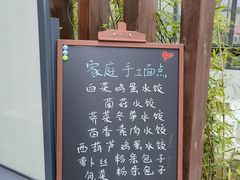 家庭手工面点
白菜鸡蛋水饺
茴菇水饺
荠菜冬笋水饺
茴香素肉水饺
西葫芦鸡蛋水饺
萝卜丝粉条包子
旬菜粉条包子